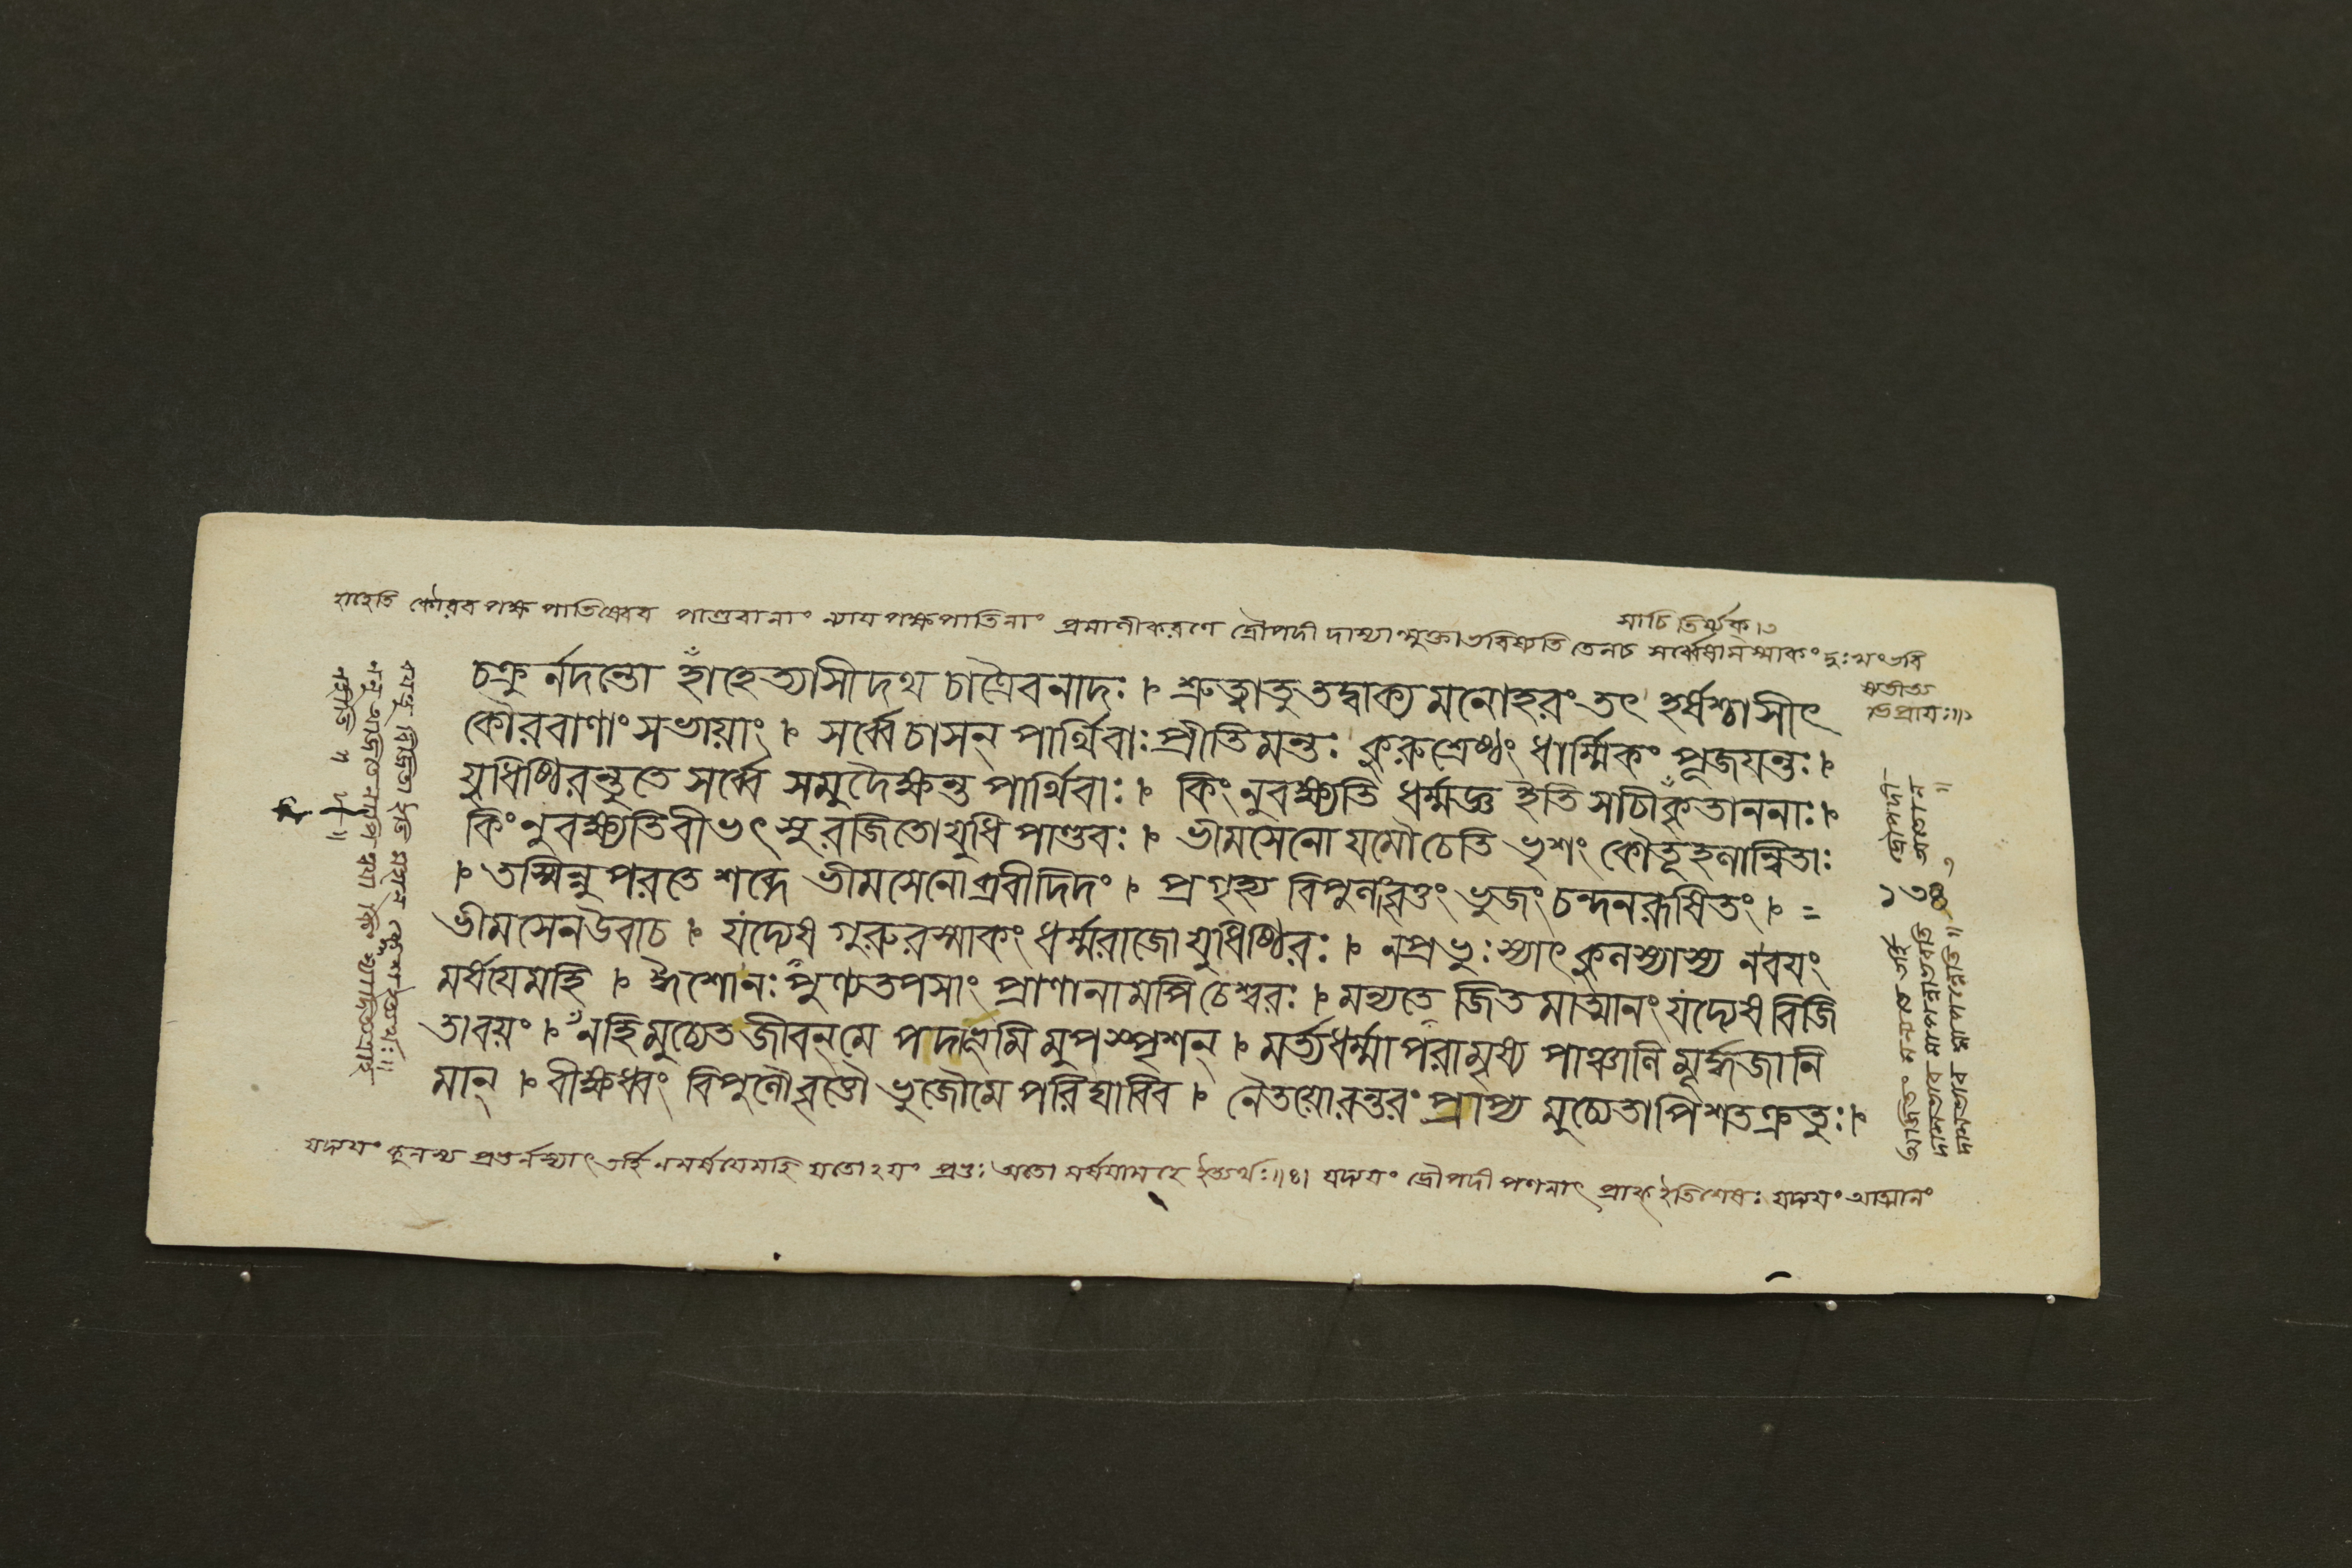 হাহেতি কৌরব পক্ষ পাতিষ্বেবব পাণ্ডবানাং ন্যায পক্ষপাতিনাং প্রমাণীকরণে দ্রৌপদী দাস্যান্মুক্তাভবিষ্যতি তেনচ সর্ব্বেষামস্মাকং দুঃখংভবি
ষ্যতীত্য
ভিপ্রাযঃ॥১
সাচি তির্য্যক্।৩
চক্রুর্নদন্তো হাঁহেত্যাসীদথ চাত্রৈবনাদঃ । শ্রুত্বাতুতদ্বাক্য মনোহরং তৎ হর্ষশ্চাসীৎ
কৌরবাণাংসভায়াং । সর্ব্বেচাসন্ পার্থিবাঃপ্রীতিমন্তঃ কুরুশ্রেষ্ঠং ধার্ম্মিকং পূজযন্তঃ ।
যুধিষ্ঠিরন্তুতে সর্ব্বে সমুদৈক্ষন্ত পার্থিবাঃ । কিংনুবক্ষ্যতি ধর্ম্মজ্ঞ ইতি সাচীকৃতাননাঃ ।
কিংনুবক্ষ্যতিবীভৎসুরজিতোযুধি পাণ্ডবঃ । ভীমসেনো যমৌচেতি ভৃশং কৌতূহলান্বিতাঃ
। তস্মিন্নুপরতে শব্দে ভীমসেনোব্রবীদিদং । প্রগৃহ্য বিপুলংবৃত্তং ভুজং চন্দনরূষিতং । =
ভীমসেনউবাচ । যদ্যেষ গুরুরস্মাকং ধর্ম্মরাজো যুধিষ্ঠিরঃ । নপ্রভুঃস্যাৎ কুলস্যাস্য নবযং
মর্ষযেমহি । ঈশোনঃপুণ্যতপসাং প্রাণানামপিচেশ্বরঃ । মন্যতে জিতমাত্মানং যদ্যেষ বিজি
তাবয়ং । নহিমুচ্যেত জীবন্মে পদাভূমি মুপস্পৃশন্ । মর্ত্যধর্ম্মাপরামৃষ্য পাঞ্চাল্যা মূর্দ্ধজানি
মান্ । বীক্ষধ্বং বিপুলৌবৃত্তৌ ভুজৌমে পরিঘাবিব । নৈতয়োরন্তরং প্রাপ্য মুচ্যেতাপিশতক্রতুঃ ।
১৩৪
যদ্যযং কুলস্য প্রভুর্নস্যাৎ তর্হি নমর্ষযেমহি যতোঽযং প্রভুঃ অতো মর্ষযামহে ইত্যর্থঃ॥৪। যদ্যযং দ্রৌপদী পণনাৎ প্রাক্ ইতিশেষঃ যদ্যযং আত্মানং